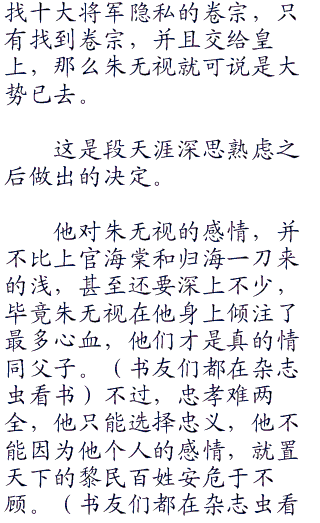 找十大将军隐私的卷宗，只
有找到卷宗，并且交给皇
上，那么朱无视就可说是大
势已去。
这是段天涯深思熟虑之
后做出的决定。
他对朱无视的感情，并
不比上官海棠和归海一刀来
的浅，甚至还要深上不少，
毕竟朱无视在他身上倾注了
最多心血，他们才是真的情
同父子。（书友们都在杂志
虫看书）不过，忠孝难两
全，他只能选择忠义，他不
能因为他个人的感情，就置
天下的黎民百姓安危于不
顾。（书友们都在杂志虫看